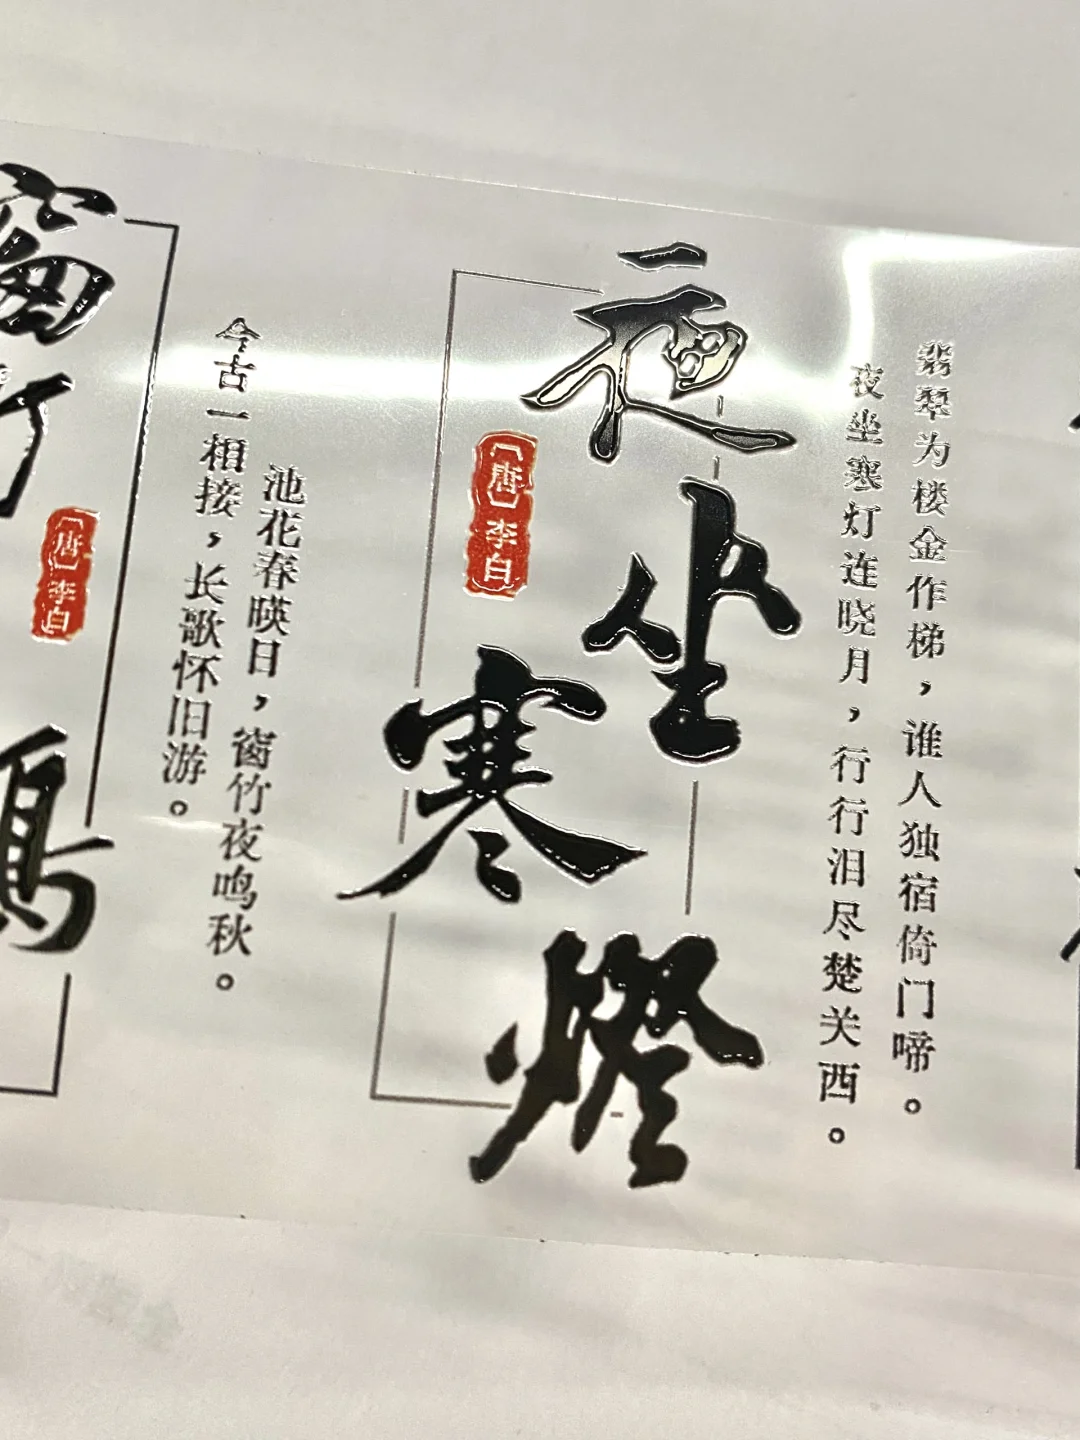 翡翠为楼金作梯，谁人独宿倚门啼。
夜坐寒灯连晓月，行行泪尽楚关西。
夜坐寒燈
〔唐〕李白
池花春暎日，窗竹夜鸣秋。
今古一相接，长歌怀旧游。
窗竹
鳴
〔唐〕李白